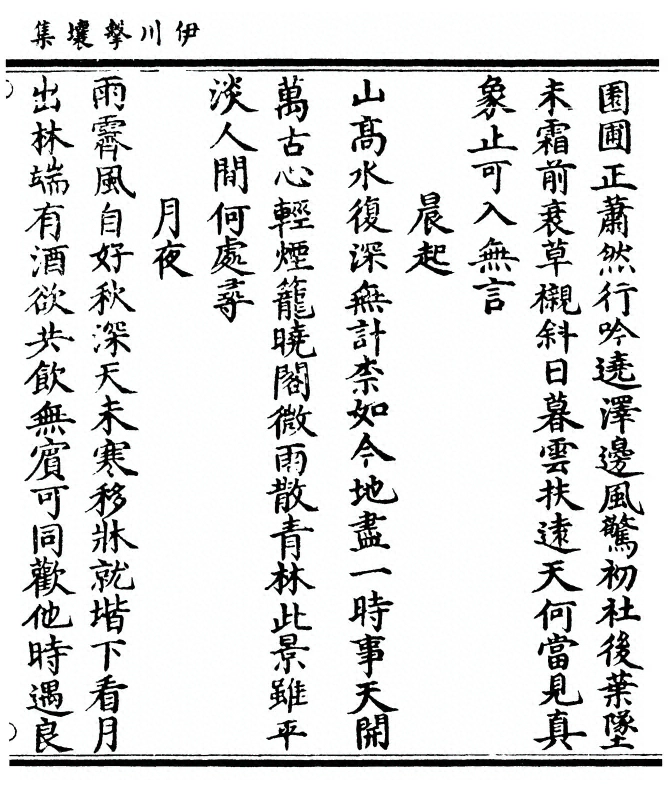 伊川擊壤集
園圃正蕭然行吟遶澤邊風驚初社後葉墜
未霜前衰草襯斜日暮雲扶遠天何當見真
象止可入無言
晨起
山高水復深無計柰如今地盡一時事天開
萬古心輕煙籠曉閣微雨散青林此景雖平
淡人間何處尋
月夜
雨霽風自好秋深天未寒移牀就堦下看月
出林端有酒欲共飲無賓可同歡他時遇良